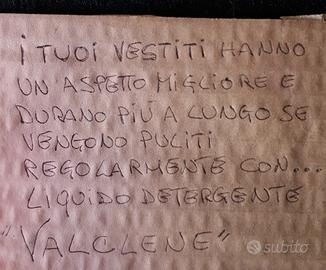 I TUOI VESTITI HANNO
UN ASPETTO MIGLIORE E
DURANO PIÙ A LUNGO SE
VENGONO PULITI
REGOLARMENTE CON...
LIQUIDO DETERGENTE
"VALCLENE"
subito